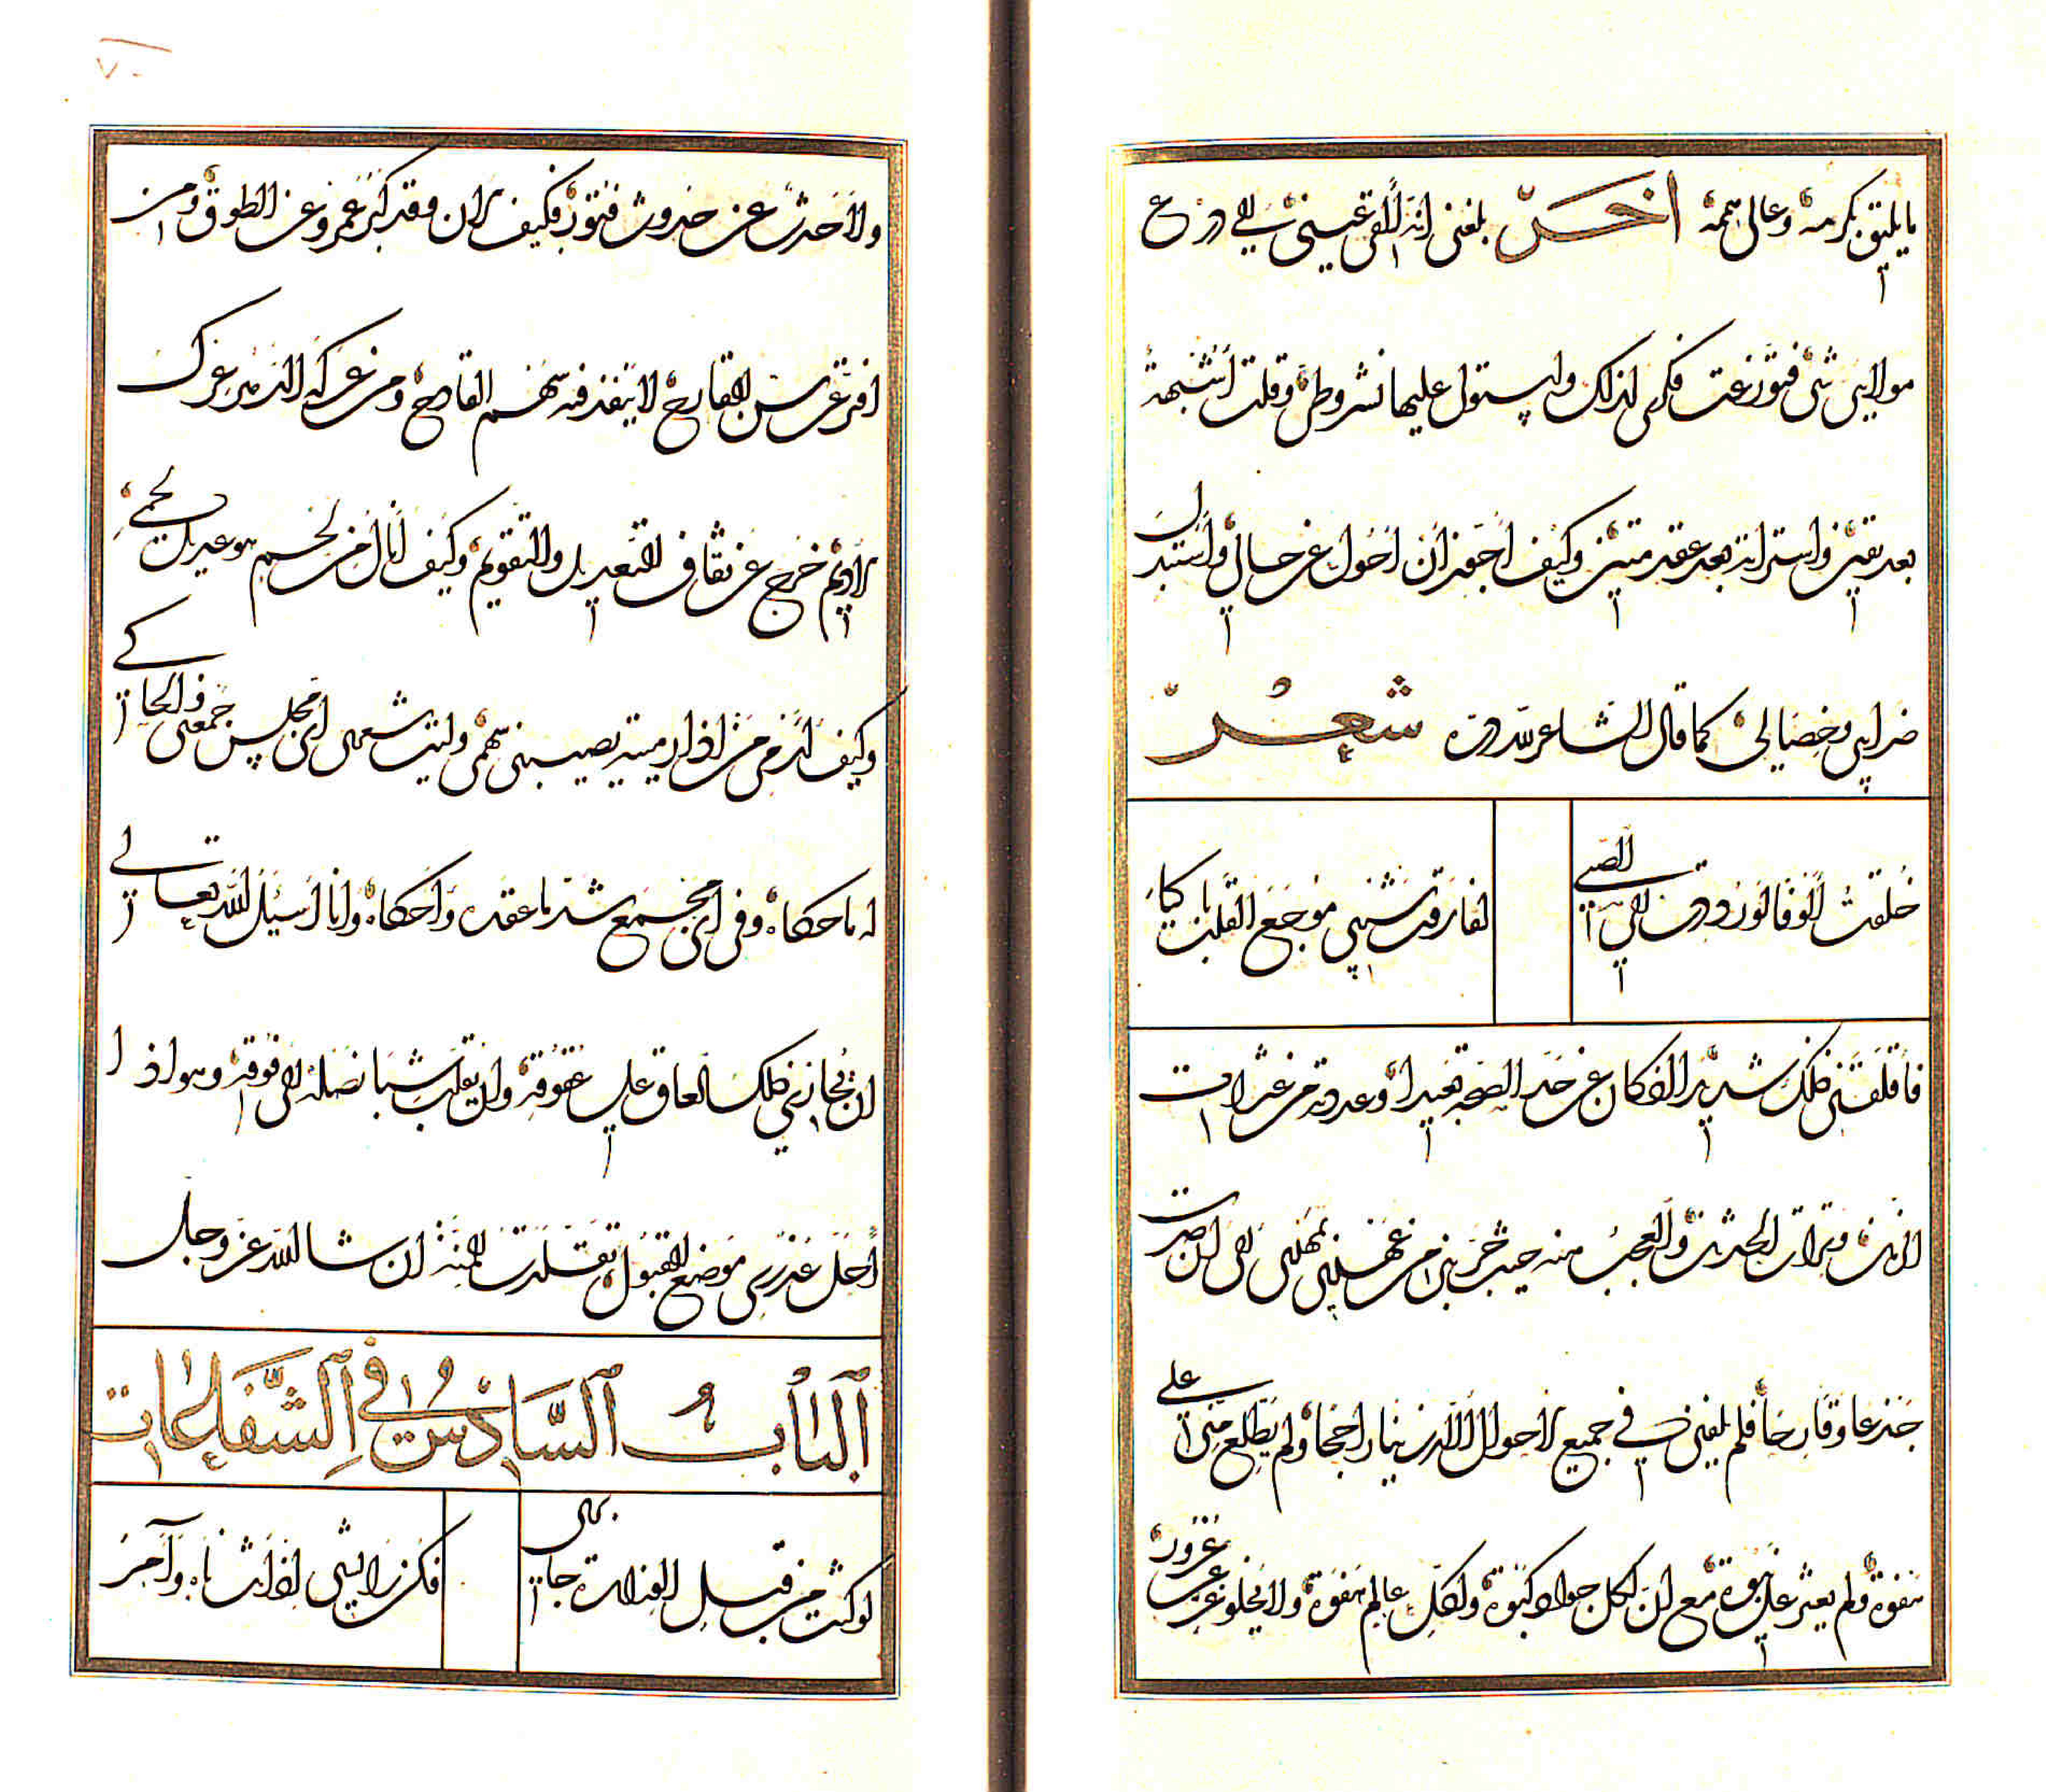 ما يليق بكرمه وعالي هممه اخر بلغني انه القي عني الي ورع
مولاي شئ فتوزعت فكري لذلك واستولي عليها نشر وطي وقلت اشبهة
بعد يقين واسترابة بعد عقد متين وكيف اجوز ان احول عن حالي واستبدل
ضرايبي وخصالي كما قال الشاعر لله دره شعر
خلقت الوفا لو رددت الي الصبي
لفارقت شيبي موجع القلب باكيا
فاقلقني ذلك شديدا وكان عن حد الصحة بعيدا وعددته من عثرات
الزمن وترات الحدثن والعجب منه حيث جربني من عهد مهدي الي ان صرت
جذعا وقارحا فلم يلفني في جميع الاحوال الا دينا راجحا ولم يطلع مني علي
هفوة ولم يعثر علي نبوة مع ان لكل جواد كبوة ولكل عالم هفوة ولا يخلو عن غرور
ولا حدث عن حدوث فتور فكيف الان وقد كبر عمرو عن الطوق ومن
افتر عن سن القارح لا ينفذ فيه سهم القادح ومن عركه الدهر عرك
الاديم خرج عن ثقاف التعديل والتقويم وكيف انال من لحم هو عديل لحمي
وكيف ارمي من اذا رميته يصيبني سهمي وليت شعري اي مجلس جمعني والحاكي
له ما حكاه وفي اي مجمع شد ما عقده واحكاه وانا اسئل الله تعالي
ان يجازي ذلك العاق علي عقوقه وان يقلب شبا نصله الي فوقه وهو اذا
احل عذري موضع القبول تقلدت المنة ان شا الله عز وجل
الباب السادس في الشفاعات
لو كنت من قبل الولادة جاري
فكن زايني اذا شا وآجر